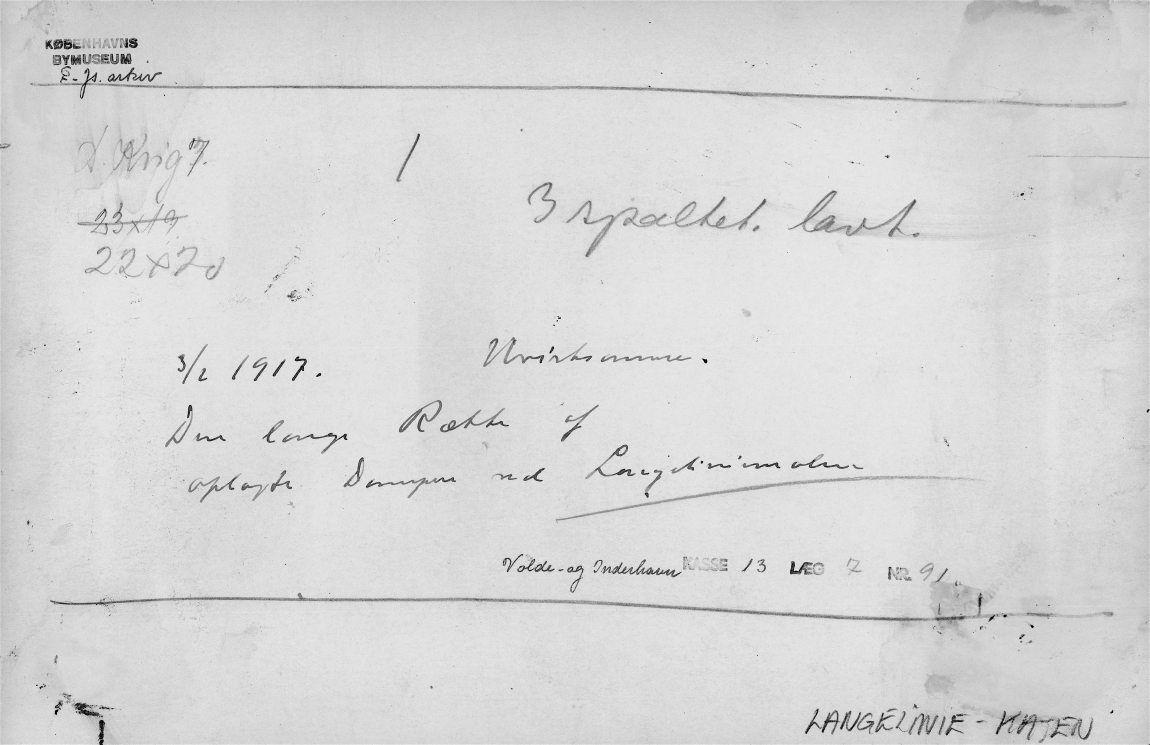 KØBENHAVNS
BYMUSEUM
P-Js. arkiv
1
3 spaltet. lavt.
23x19
22x20
3/2 1917.
Uvirksomme.
Den lange Række af
oplagte Dampere ved Langeliniemolen
Volde-og Inderhavn KASSE 13 LÆG 7 NR. 91.
LANGELINIE - KAJEN